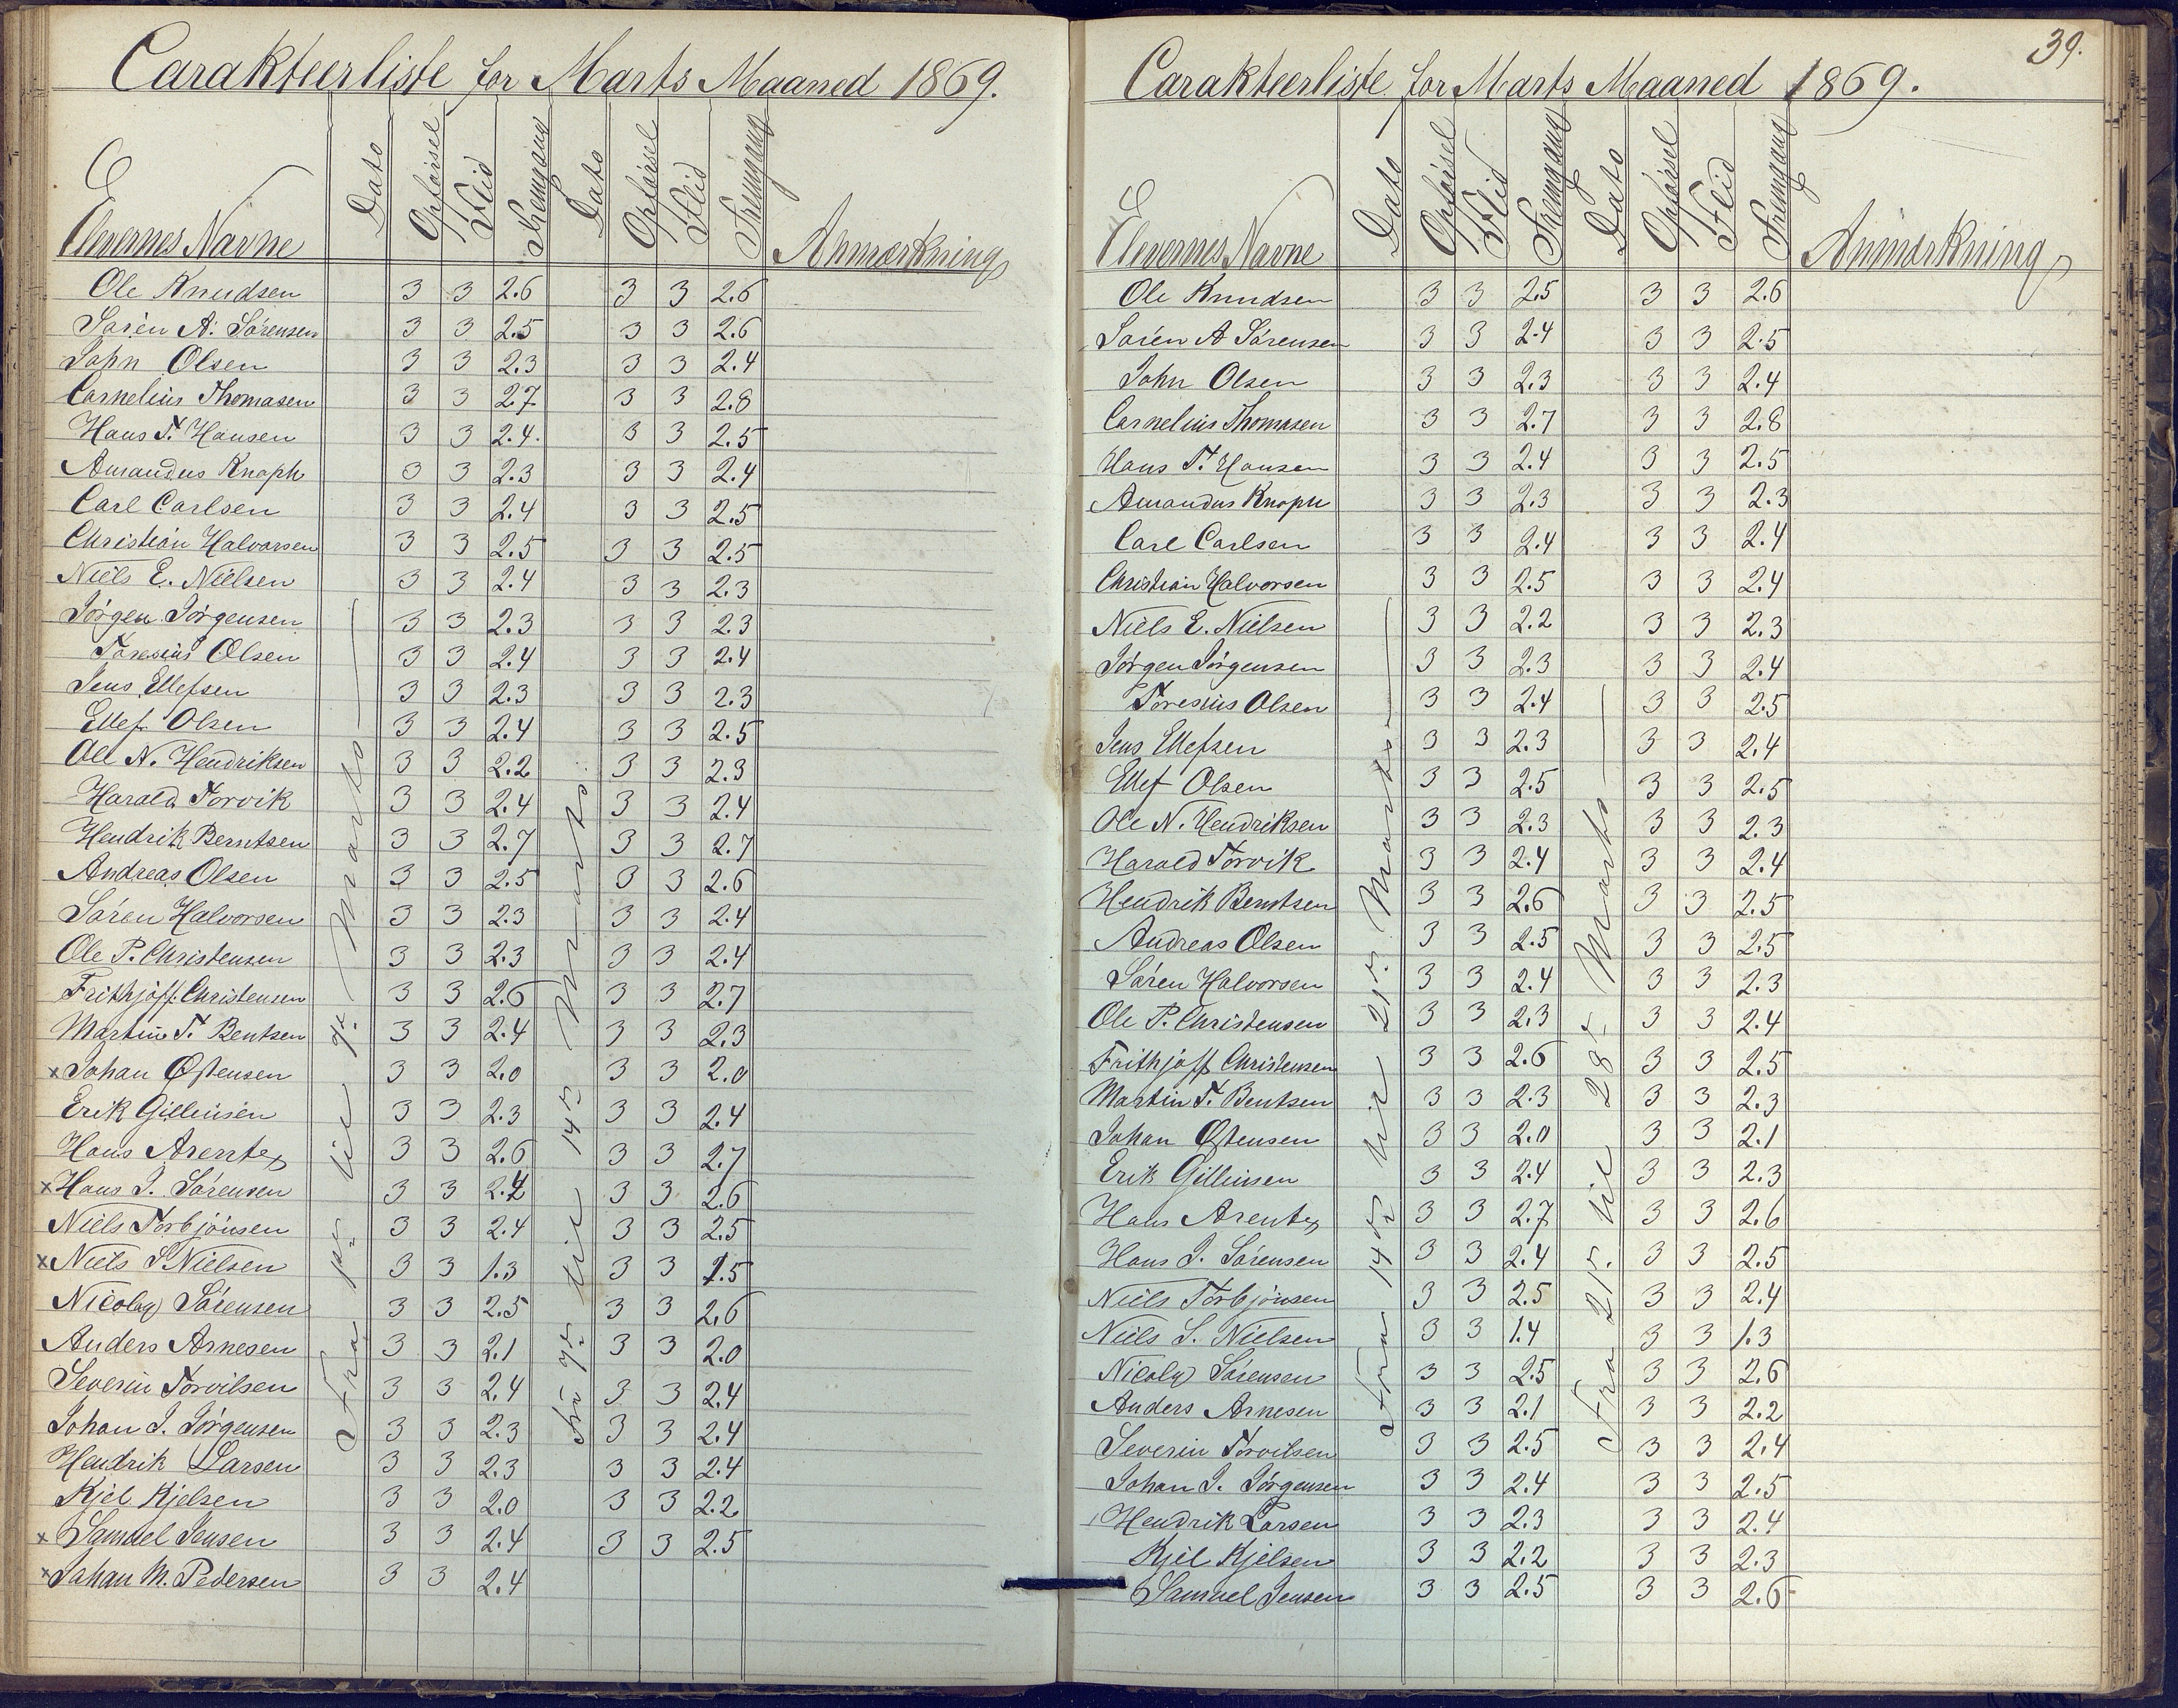 Carakteerliste for Marts Maaned 1869.
Elevernes Navne Dato Opførsel Flid Fremgang Dato Opførsel Flid Fremgang Anmærkning
Fra 1ste til 7de Marts
Fra 7de til 14de Marts
Ole Knudsen 3 3 2.6 3 3 2.6
Søren A. Sørensen 3 3 2.5 3 3 2.6
John Olsen 3 3 2.3 3 3 2.4
Cornelius Thomasen 3 3 2.7 3 3 2.8
Hans T. Hansen 3 3 2.4 3 3 2.5
Amandus Knoph 3 3 2.3 3 3 2.4
Carl Carlsen 3 3 2.4 3 3 2.5
Christian Halvorsen 3 3 2.5 3 3 2.5
Niels E. Nielsen 3 3 2.4 3 3 2.3
Jørgen Jørgensen 3 3 2.3 3 3 2.3
Toresius Olsen 3 3 2.4 3 3 2.4
Jens Ellefsen 3 3 2.3 3 3 2.3
Ellef Olsen 3 3 2.4 3 3 2.5
Ole N. Hendriksen 3 3 2.2 3 3 2.3
Harald Torvik 3 3 2.4 3 3 2.4
Hendrik Berntsen 3 3 2.7 3 3 2.7
Andreas Olsen 3 3 2.5 3 3 2.6
Søren Halvorsen 3 3 2.3 3 3 2.4
Ole P. Christensen 3 3 2.3 3 3 2.4
Frithjoff Christensen 3 3 2.6 3 3 2.7
Martin T. Bentsen 3 3 2.4 3 3 2.3
x Johan Østensen 3 3 2.0 3 3 2.0
Erik Gilleusen 3 3 2.3 3 3 2.4
Hans Arentz 3 3 2.6 3 3 2.7
x Hans J. Sørensen 3 3 2.4 3 3 2.6
Niels Torbjönsen 3 3 2.4 3 3 2.5
x Niels S. Nielsen 3 3 1.3 3 3 1.5
Nicolay Sørensen 3 3 2.5 3 3 2.6
Anders Arnesen 3 3 2.1 3 3 2.0
Severin Torvilsen 3 3 2.4 3 3 2.4
Johan J. Jørgensen 3 3 2.3 3 3 2.4
Hendrik Larsen 3 3 2.3 3 3 2.4
Kjel Kjelsen 3 3 2.0 3 3 2.2
x Samuel Jensen 3 3 2.4 3 3 2.5
x Johan M. Pedersen 3 3 2.4
39.
Carakteerliste for Marts Maaned 1869.
Elevernes Navne Dato Opførsel Flid Fremgang Dato Opførsel Flid Fremgang Anmærkning
Fra 14de til 21de Marts
Fra 21de til 28de Marts
Ole Knudsen 3 3 2.5 3 3 2.6
Søren A Sørensen 3 3 2.4 3 3 2.5
John Olsen 3 3 2.3 3 3 2.4
Cornelius Thomasen 3 3 2.7 3 3 2.8
Hans T. Hansen 3 3 2.4 3 3 2.5
Amandus Knoph 3 3 2.3 3 3 2.3
Carl Carlsen 3 3 2.4 3 3 2.4
Christian Halvorsen 3 3 2.5 3 3 2.4
Niels E. Nielsen 3 3 2.2 3 3 2.3
Jørgen Jørgensen 3 3 2.3 3 3 2.4
Toresius Olsen 3 3 2.4 3 3 2.5
Jens Ellefsen 3 3 2.3 3 3 2.4
Ellef Olsen 3 3 2.5 3 3 2.5
Ole N. Hendriksen 3 3 2.3 3 3 2.3
Harald Torvik 3 3 2.4 3 3 2.4
Hendrik Berntsen 3 3 2.6 3 3 2.5
Andreas Olsen 3 3 2.5 3 3 2.5
Søren Halvorsen 3 3 2.4 3 3 2.3
Ole P. Christensen 3 3 2.3 3 3 2.4
Frithjoff Christensen 3 3 2.6 3 3 2.5
Martin T. Bentsen 3 3 2.3 3 3 2.3
Johan Østensen 3 3 2.0 3 3 2.1
Erik Gilleusen 3 3 2.4 3 3 2.3
Hans Arentz 3 3 2.7 3 3 2.6
Hans J. Sørensen 3 3 2.4 3 3 2.5
Niels Torbjönsen 3 3 2.5 3 3 2.4
Niels S. Nielsen 3 3 1.4 3 3 1.3
Nicolay Sørensen 3 3 2.5 3 3 2.6
Anders Arnesen 3 3 2.1 3 3 2.2
Severin Torvilsen 3 3 2.5 3 3 2.4
Johan J. Jørgensen 3 3 2.4 3 3 2.5
Hendrik Larsen 3 3 2.3 3 3 2.4
Kjel Kjelsen 3 3 2.2 3 3 2.3
Samuel Jensen 3 3 2.5 3 3 2.6